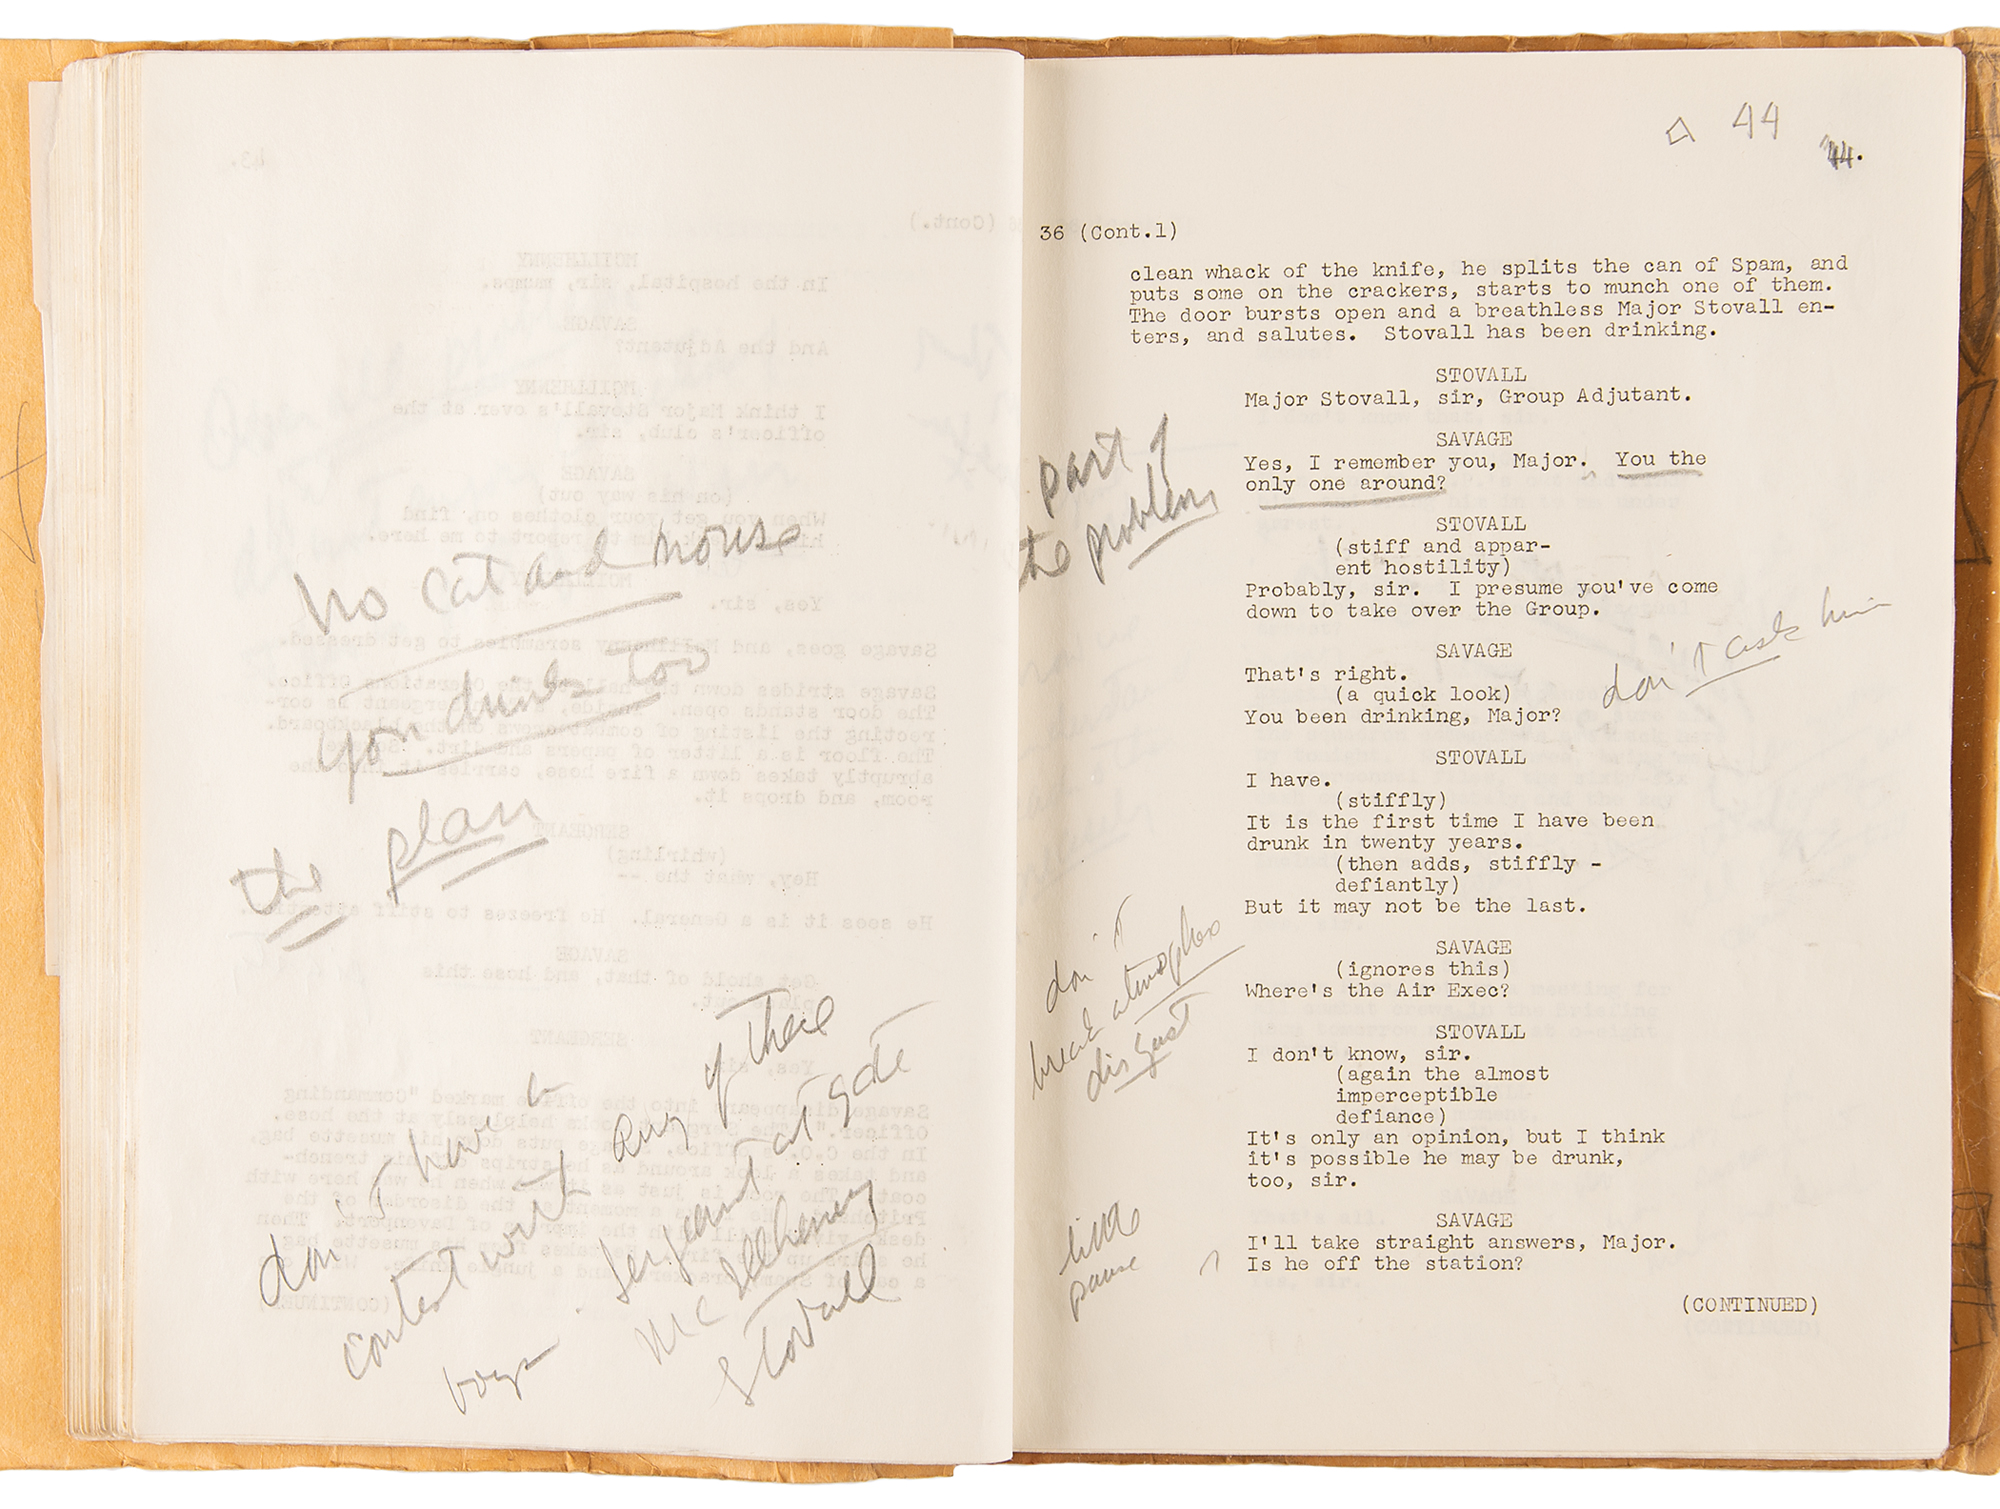 no cat and mouse
you drink too
the plan
don't have to
contest with any of these
boys. Sergeant at gate
McIllhenny
Stovall
44
44.
36 (Cont.1)
clean whack of the knife, he splits the can of Spam, and
puts some on the crackers, starts to munch one of them.
The door bursts open and a breathless Major Stovall en-
ters, and salutes. Stovall has been drinking.
STOVALL
Major Stovall, sir, Group Adjutant.
SAVAGE
Yes, I remember you, Major. You the
only one around?
part of
the problem
STOVALL
(stiff and appar-
ent hostility)
Probably, sir. I presume you've come
down to take over the Group.
SAVAGE
That's right.
(a quick look)
You been drinking, Major?
don't ask him
STOVALL
I have.
(stiffly)
It is the first time I have been
drunk in twenty years.
(then adds, stiffly -
defiantly)
But it may not be the last.
SAVAGE
(ignores this)
Where's the Air Exec?
don't
break
disgust
STOVALL
I don't know, sir.
(again the almost
imperceptible
defiance)
It's only an opinion, but I think
it's possible he may be drunk,
too, sir.
SAVAGE
I'll take straight answers, Major.
Is he off the station?
little
pause
(CONTINUED)